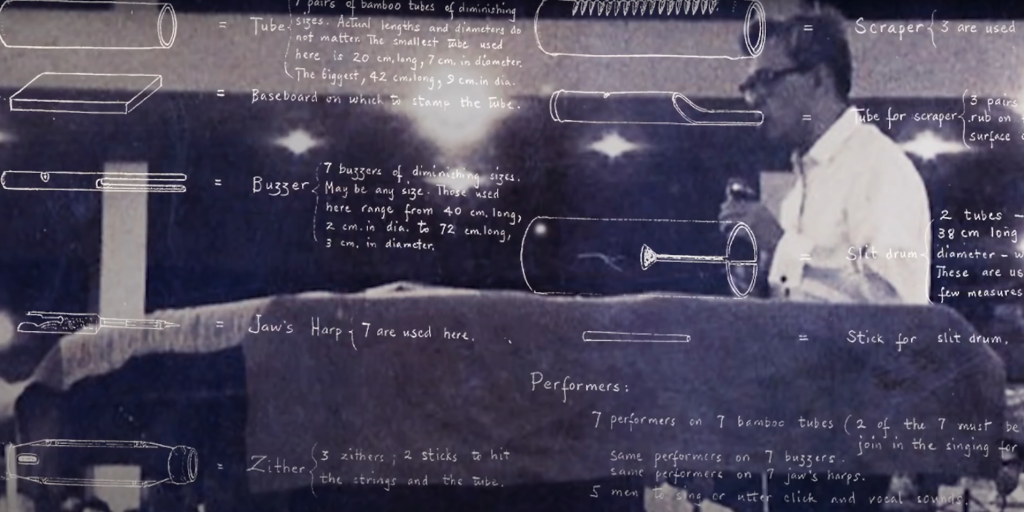 7 pairs of bamboo tubes of diminishing
= Tube sizes. Actual lengths and diameters do
not matter. The smallest tube used
here is 20 cm. long, 7 cm. in diameter.
The biggest, 42 cm. long, 9 cm. in dia.
= Baseboard on which to stamp the tube.
7 buzzers of diminishing sizes.
= Buzzer May be any size. Those used
here range from 40 cm. long,
2 cm. in dia. to 72 cm. long,
3 cm. in diameter.
= Jaw's Harp 7 are used here.
= Zither 3 zithers ; 2 sticks to hit
the strings and the tube.
= Scraper 3 are used
3 pairs
= Tube for scraper rub on
surface
2 tubes –
38 cm long
= Slit drum diameter – w
These are us
few measures
= Stick for slit drum.
Performers:
7 performers on 7 bamboo tubes ( 2 of the 7 must be
join in the singing for
same performers on 7 buzzers.
same performers on 7 jaw's harps.
5 men to sing or utter click and vocal sounds.